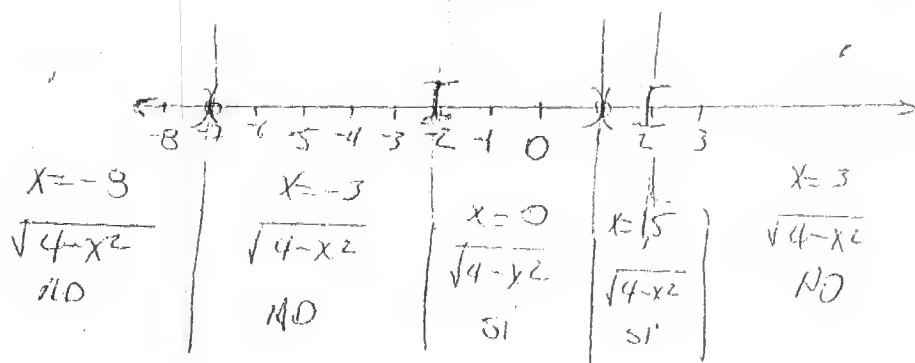 -8 -7 -6 -5 -4 -3 -2 -1 0 1 2 3
x=-8
√4-x²
NO
x=-3
√4-x²
NO
x=0
√4-x²
SI
x=1,5
√4-x²
SI
x=3
√4-x²
NO